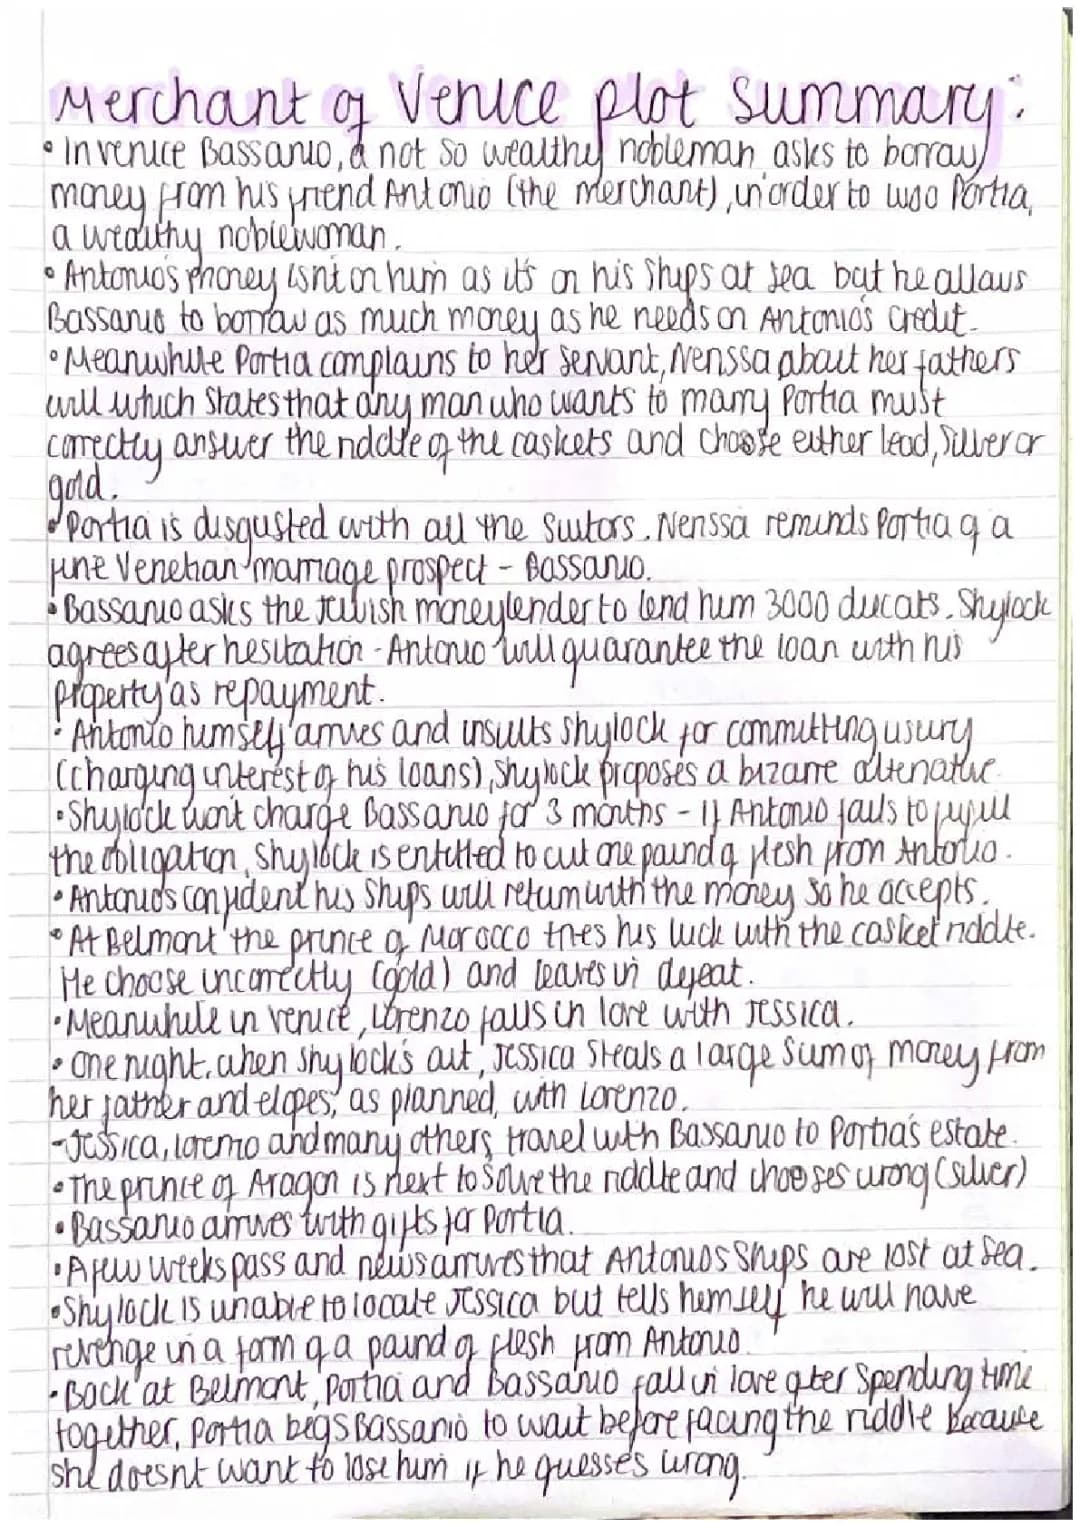 Merchant of Venice plot Summary:
• In venice Bassanio, a not so wealthy nobleman asks to borrow
money from his friend Antonio (the merchant), in order to woo Portia,
a wealthy noblewoman.
• Antonio's money isnt on him as it's on his ships at sea but he allows
Bassanio to borrow as much money as he needs on Antonio's credit.
• Meanwhile Portia complains to her servant, Nerissa about her fathers
will which states that any man who wants to marry Portia must
correctly answer the riddle of the caskets and choose either lead, silver or
gold.
• Portia is disgusted with all the suitors. Nerissa reminds Portia of a
fine Venetian marriage prospect - Bassanio.
• Bassanio asks the Jewish moneylender to lend him 3000 ducats. Shylock
agrees after hesitation - Antonio will guarantee the loan with his
property as repayment.
• Antonio himself arrives and insults Shylock for committing usury
(charging interest of his loans), Shylock proposes a bizarre altenative.
• Shylock won't charge Bassanio for 3 months - If Antonio fails to fufill
the obligation, Shylock is entitled to cut one pound of flesh from Antonio.
• Antonio's confident his ships will return with the money so he accepts.
• At Belmont the prince of Morocco tries his luck with the casket riddle.
He choose incorrectly (gold) and leaves in defeat.
• Meanwhile in venice, Lorenzo falls in love with Jessica.
• One night, when shylock's out, Jessica steals a large sum of money from
her father and elopes, as planned, with Lorenzo.
- Jessica, lorenzo and many others, travel with Bassanio to Portia's estate.
• The prince of Aragon is next to solve the riddle and chooses wrong (silver)
• Bassanio arrives with gifts for Portia.
• A few weeks pass and news arrives that Antonios ships are lost at sea.
• Shylock is unable to locate Jessica but tells hemself he will have
revenge in a form of a pound of flesh from Antonio.
• Back at Belmont, Portia and Bassanio fall in love after spending time
together, Portia begs Bassanio to wait before facing the riddle because
she doesnt want to lose him if he guesses wrong.